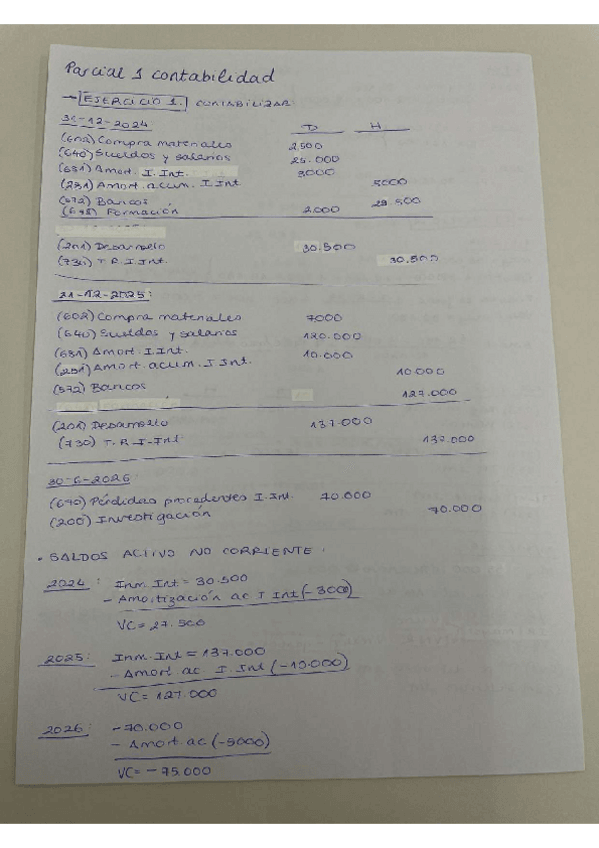 Parcial 1 contabilidad
→ EJERCICIO 1. CONTABILIZAR:
31-12-2024: D H
(602) Compra materiales 2.500
(640) Sueldos y salarios 25.000
(681) Amort. I. Int. 3000
(281) Amort. acum. I Int 3000
(572) Bancos 29.500
Formación 2.000
(201) Desarrollo 30.500
(730) T. R. I. Int. 30.500
31-12-2025:
(602) Compra materiales 7000
(640) Sueldos y salarios 120.000
(681) Amort. I. Int. 10.000
(281) Amort. acum. I Int. 10.000
(572) Bancos 127.000
(201) Desarrollo 137.000
(730) T. R. I. Int 137.000
30-6-2026:
(690) Pérdidas procedentes I. Int. 70.000
(200) Investigación 70.000
• SALDOS ACTIVO NO CORRIENTE:
2024: Inm. Int = 30.500
- Amortización ac I Int (-3000)
VC = 27.500
2025: Inm. Int = 137.000
- Amort ac. I. Int (-10.000)
VC = 127.000
2026: -70.000
- Amort. ac (-5000)
VC = -75.000